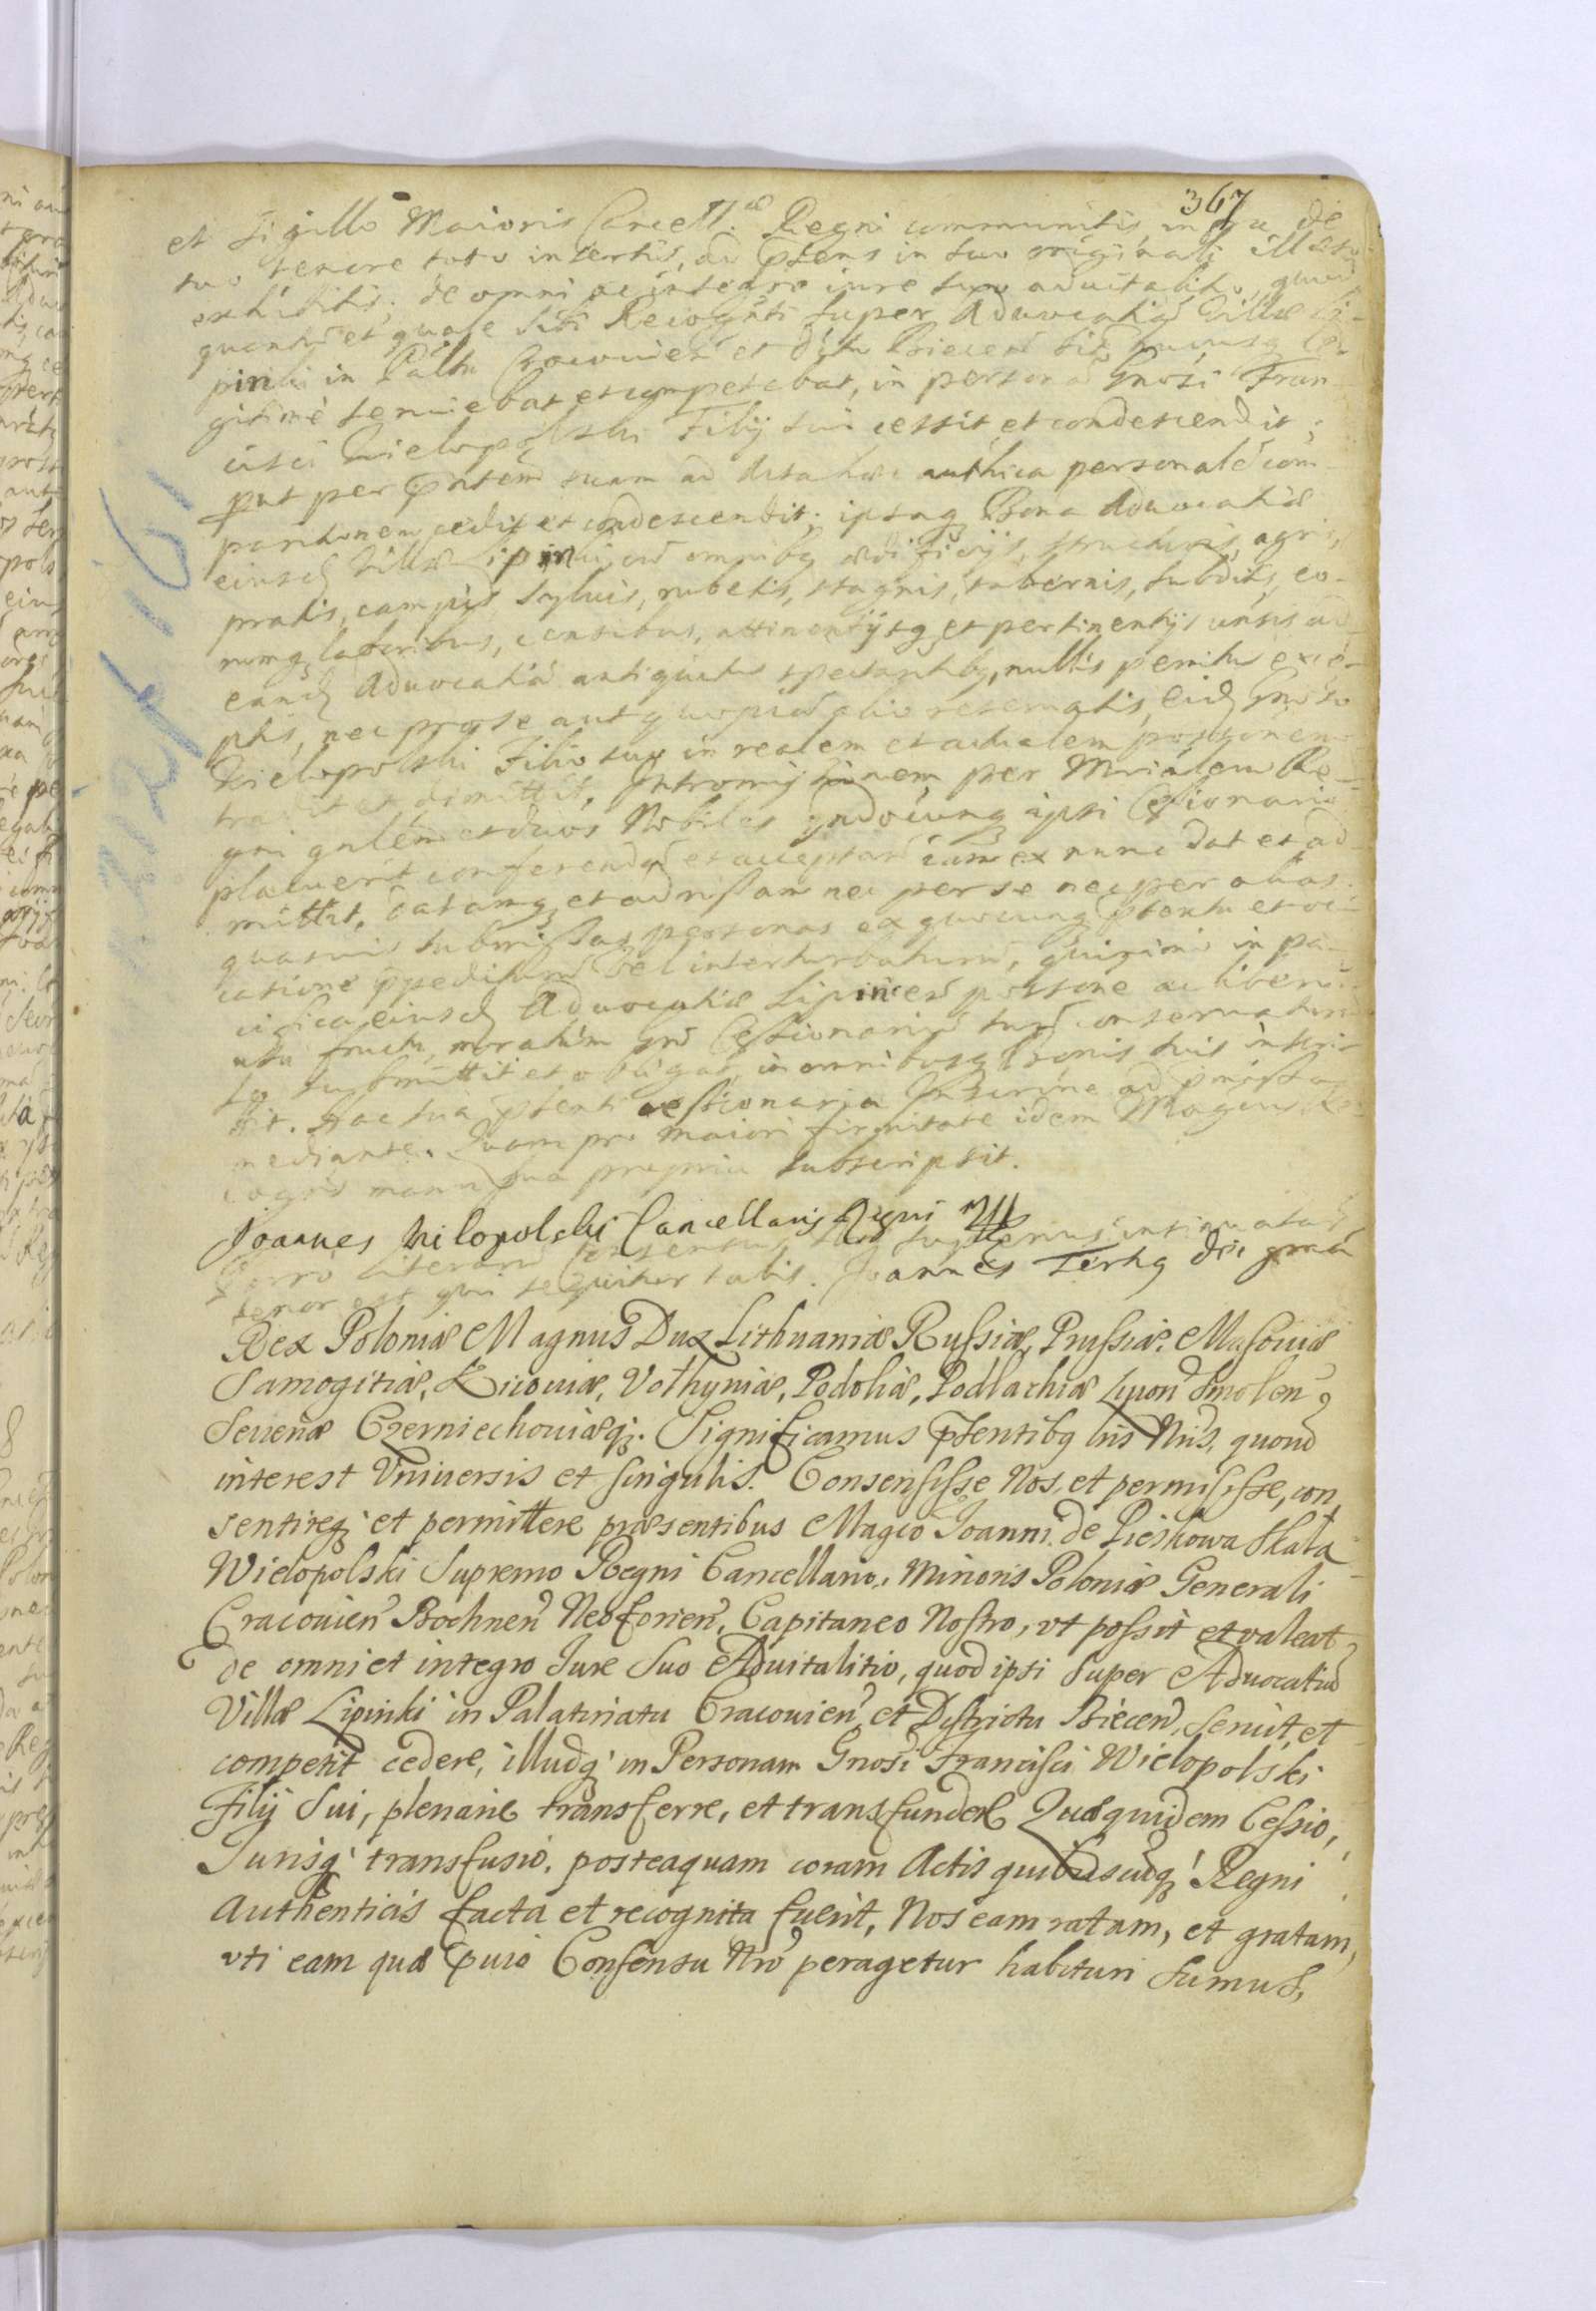 367
et sigillo Maioris Cancell.æ Regni communitis de
suo tenore toto insertis, ad pñtens in suo originali illæso
exhibitis, de omni ac integro iure suo aduitalitio, quod
quantũ et quale sibi Recognti super Aduocatiã Villæ Li-
pinki in Palñtu Cracouien̄ et dist̃u Biecen̄ sit̃ hucusq le-
gitimè seruiebat et competebat, in personã Gnosi Fran-
cisci Wielopolski Filij sui cessit et condescendit;
put per pñtem suam ad Acta hæc authica personalẽ com-
paritionem cedit et condescendit; ipsaq Bona Aduocatiæ
eiusd Villæ Lipinki cũ omnibq ædificijs, structuris, agris,
pratis, campis, syluis, rubetis, stagnis, tabernis, subditis, eo-
rumq laboribus, censibus, attinentijsq et pertinentijs uñsis ad
eand Aduocatiã antiquitus spectantibq, nullis penitus exce-
ptis, nec pro se aut quopiã alio reseruatis, eid Gnoso
Wielopolski Filio suo in realem et actualem possonem
tradit et dimittit, Intromissionem per Mrialem Re-
gni gnlem et duos Nobiles qndocunq ipsi Cessionario
placuerit conferendã et acceptan̄ iam ex nunc dat et ad-
mittit, datamq et admissam nec per se nec per alias
quasuis submissas personas ex quocunq ptextu et oc-
casione ppeditur̃ vel interturbatur̃, quinimo in pa-
cifica eiusd Aduocatiæ Lipincen̄ possone ac libero
usu fructu, moratim Gnō Cessionariũ suũ conseruatur̃
se submittit et obligat, in omnibusq Bonis suis inscri-
bit. Hac sua ptenti cessionaria Inscrñe ad pmissa
mediante. Quam pro maiori firmitate idem Magcus Re-
cogñs manu sua propria subscripsit.
Joannes Wilopolski Cancellarius Regni mp
Porro Literarũ Consensus superius insinuatar̃
tenor est qui sequitur talis. Joannes Tertiq Dei gratia
Rex Poloniæ Magnus Dux Lithuaniæ Russiæ, Prussiæ, Masouiæ
Samogitiæ, Liuoniæ, Volhyniæ, Podoliæ, Podlachiæ Kijouiæ Smolen̄
Seueriæ Czerniechouiæq. Significamus Pñtentibq lris Nris, quorũ
interest Vniuersis et singulis. Consensisse Nos, et permisisse, con
sentireq et permittere præsentibus Magco Joanni de Pieskowa Skała
Wielopolski Supremo Regni Cancellario, Minoris Poloniæ Generali
Cracouien̄ Bochnen̄ Neoforien̄, Capitaneo Nostro, vt possit et valeat
de omni et integro Jure Suo Aduitalitio, quod ipsi super Aduocatiã
Villæ Lipinki in Palatinatu Cracouien̄ et Districtu Biecen̄, seruit, et
competit cedere, illudq in Personam Gnosi Francisci Wielopolski
Filij Sui, plenarie transferre, et transfundere Quæquidem Cessio,
Jurisq transfusio, posteaquam coram Actis quibusuisq Regni
Authenticis facta et recognita fuerit, Nos eam ratam, et gratam,
vti eam quæ Præuio Consensu Nrō peragetur habituri sumus,